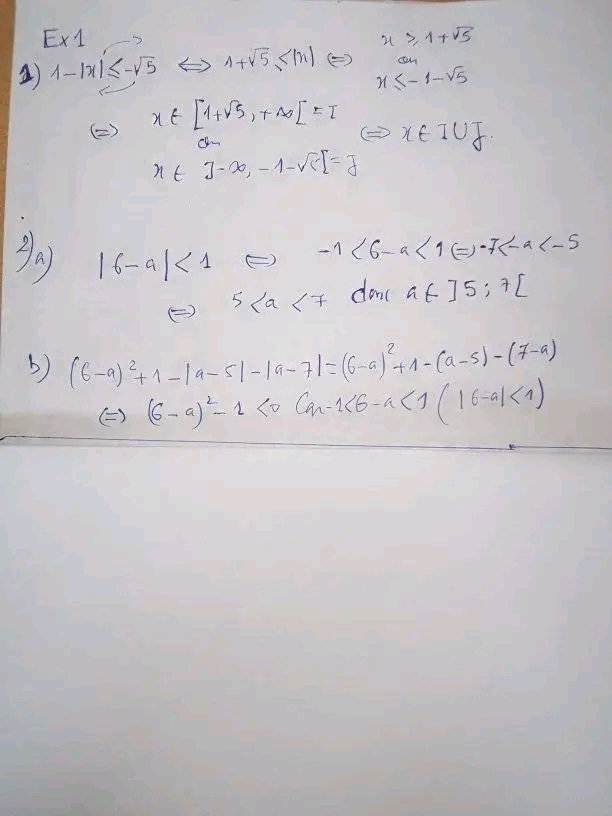 Ex1
1) 1-|x| ≤ -√5 ⇔ 1+√5 ≤ |x| ⇔ x ≥ 1+√5
ou
x ≤ -1-√5
⇔ x ∈ [1+√5, +∞[ = I
ou
x ∈ ]-∞, -1-√5] = J
⇔ x ∈ I U J.
2) a) |6-a| < 1 ⇔ -1 < 6-a < 1 ⇔ -7 < -a < -5
⇔ 5 < a < 7 donc a ∈ ]5 ; 7[
b) (6-a)² + 1 - |a-5| - |a-7| = (6-a)² + 1 - (a-5) - (7-a)
⇔ (6-a)² - 1 < 0 Car -1 < 6-a < 1 ( |6-a| < 1 )